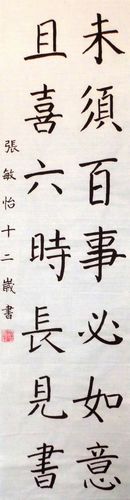 未須百事必如意
且喜六時長見書
張敏怡十二歲書